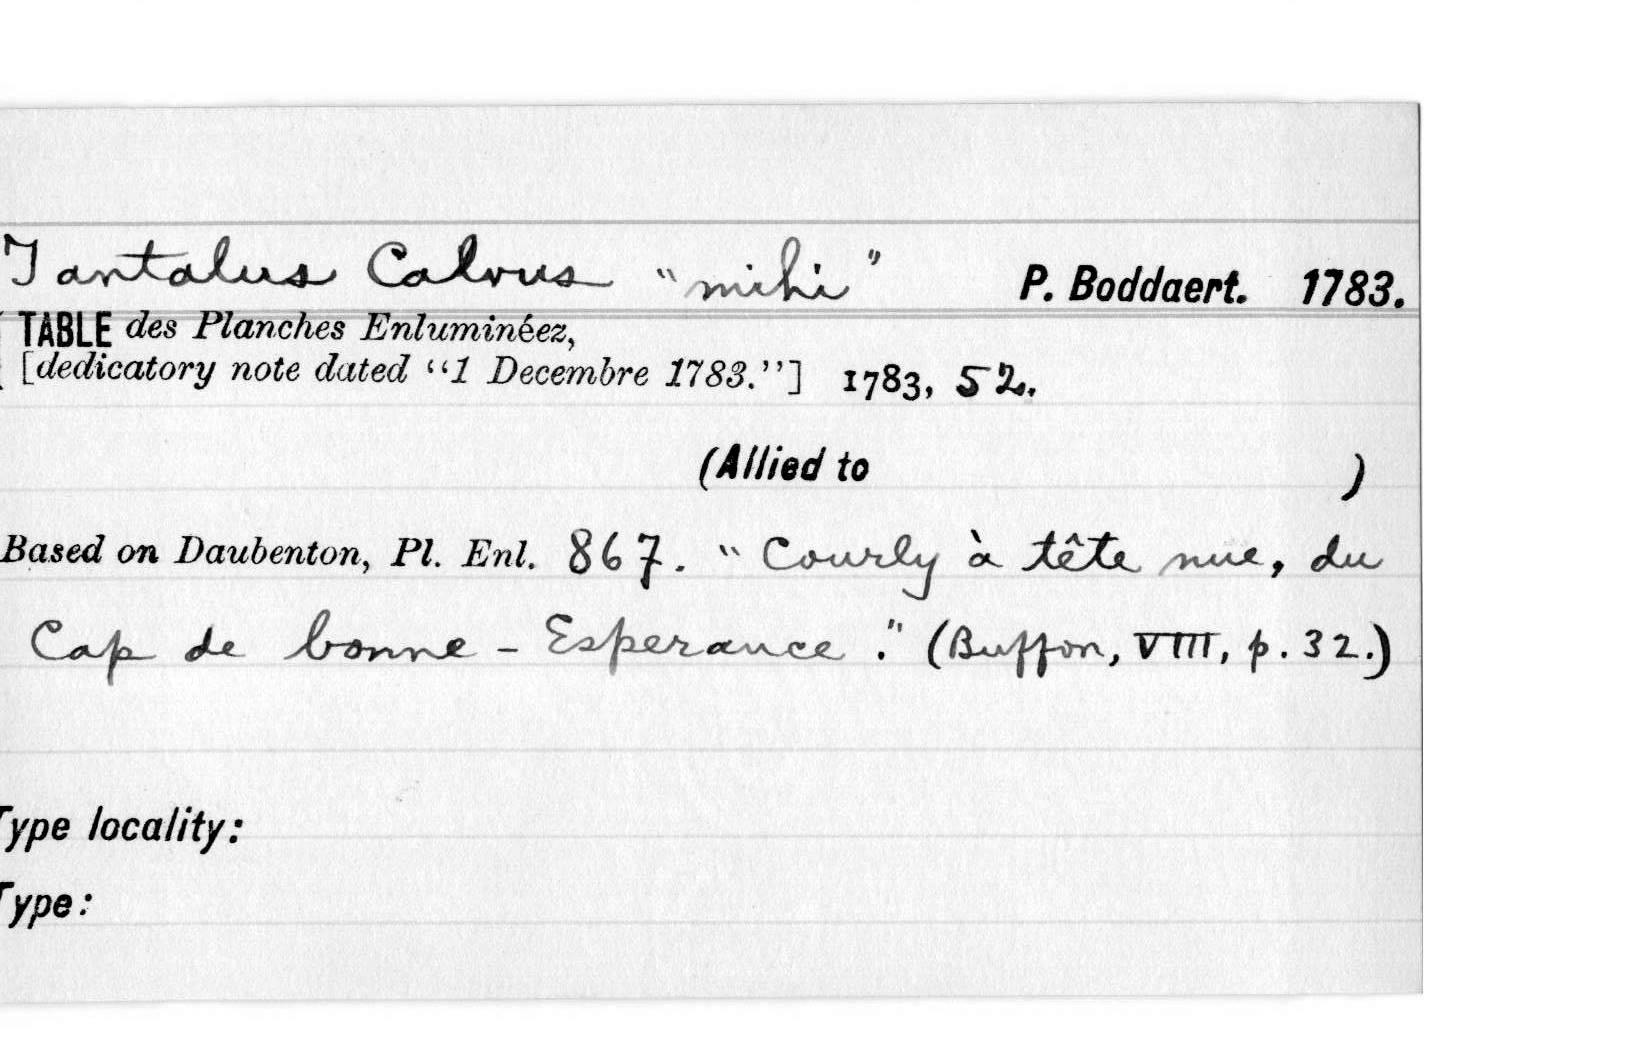 Tantalus Calvus "mihi" P. Boddaert. 1783.
TABLE des Planches Enluminéez,
[dedicatory note dated "1 Decembre 1783."] 1783, 52.
(Allied to )
Based on Daubenton, Pl. Enl. 867. "Courly à tête nue, du
Cap de bonne - Esperance." (Buffon, VIII, p. 32.)
Type locality:
Type: